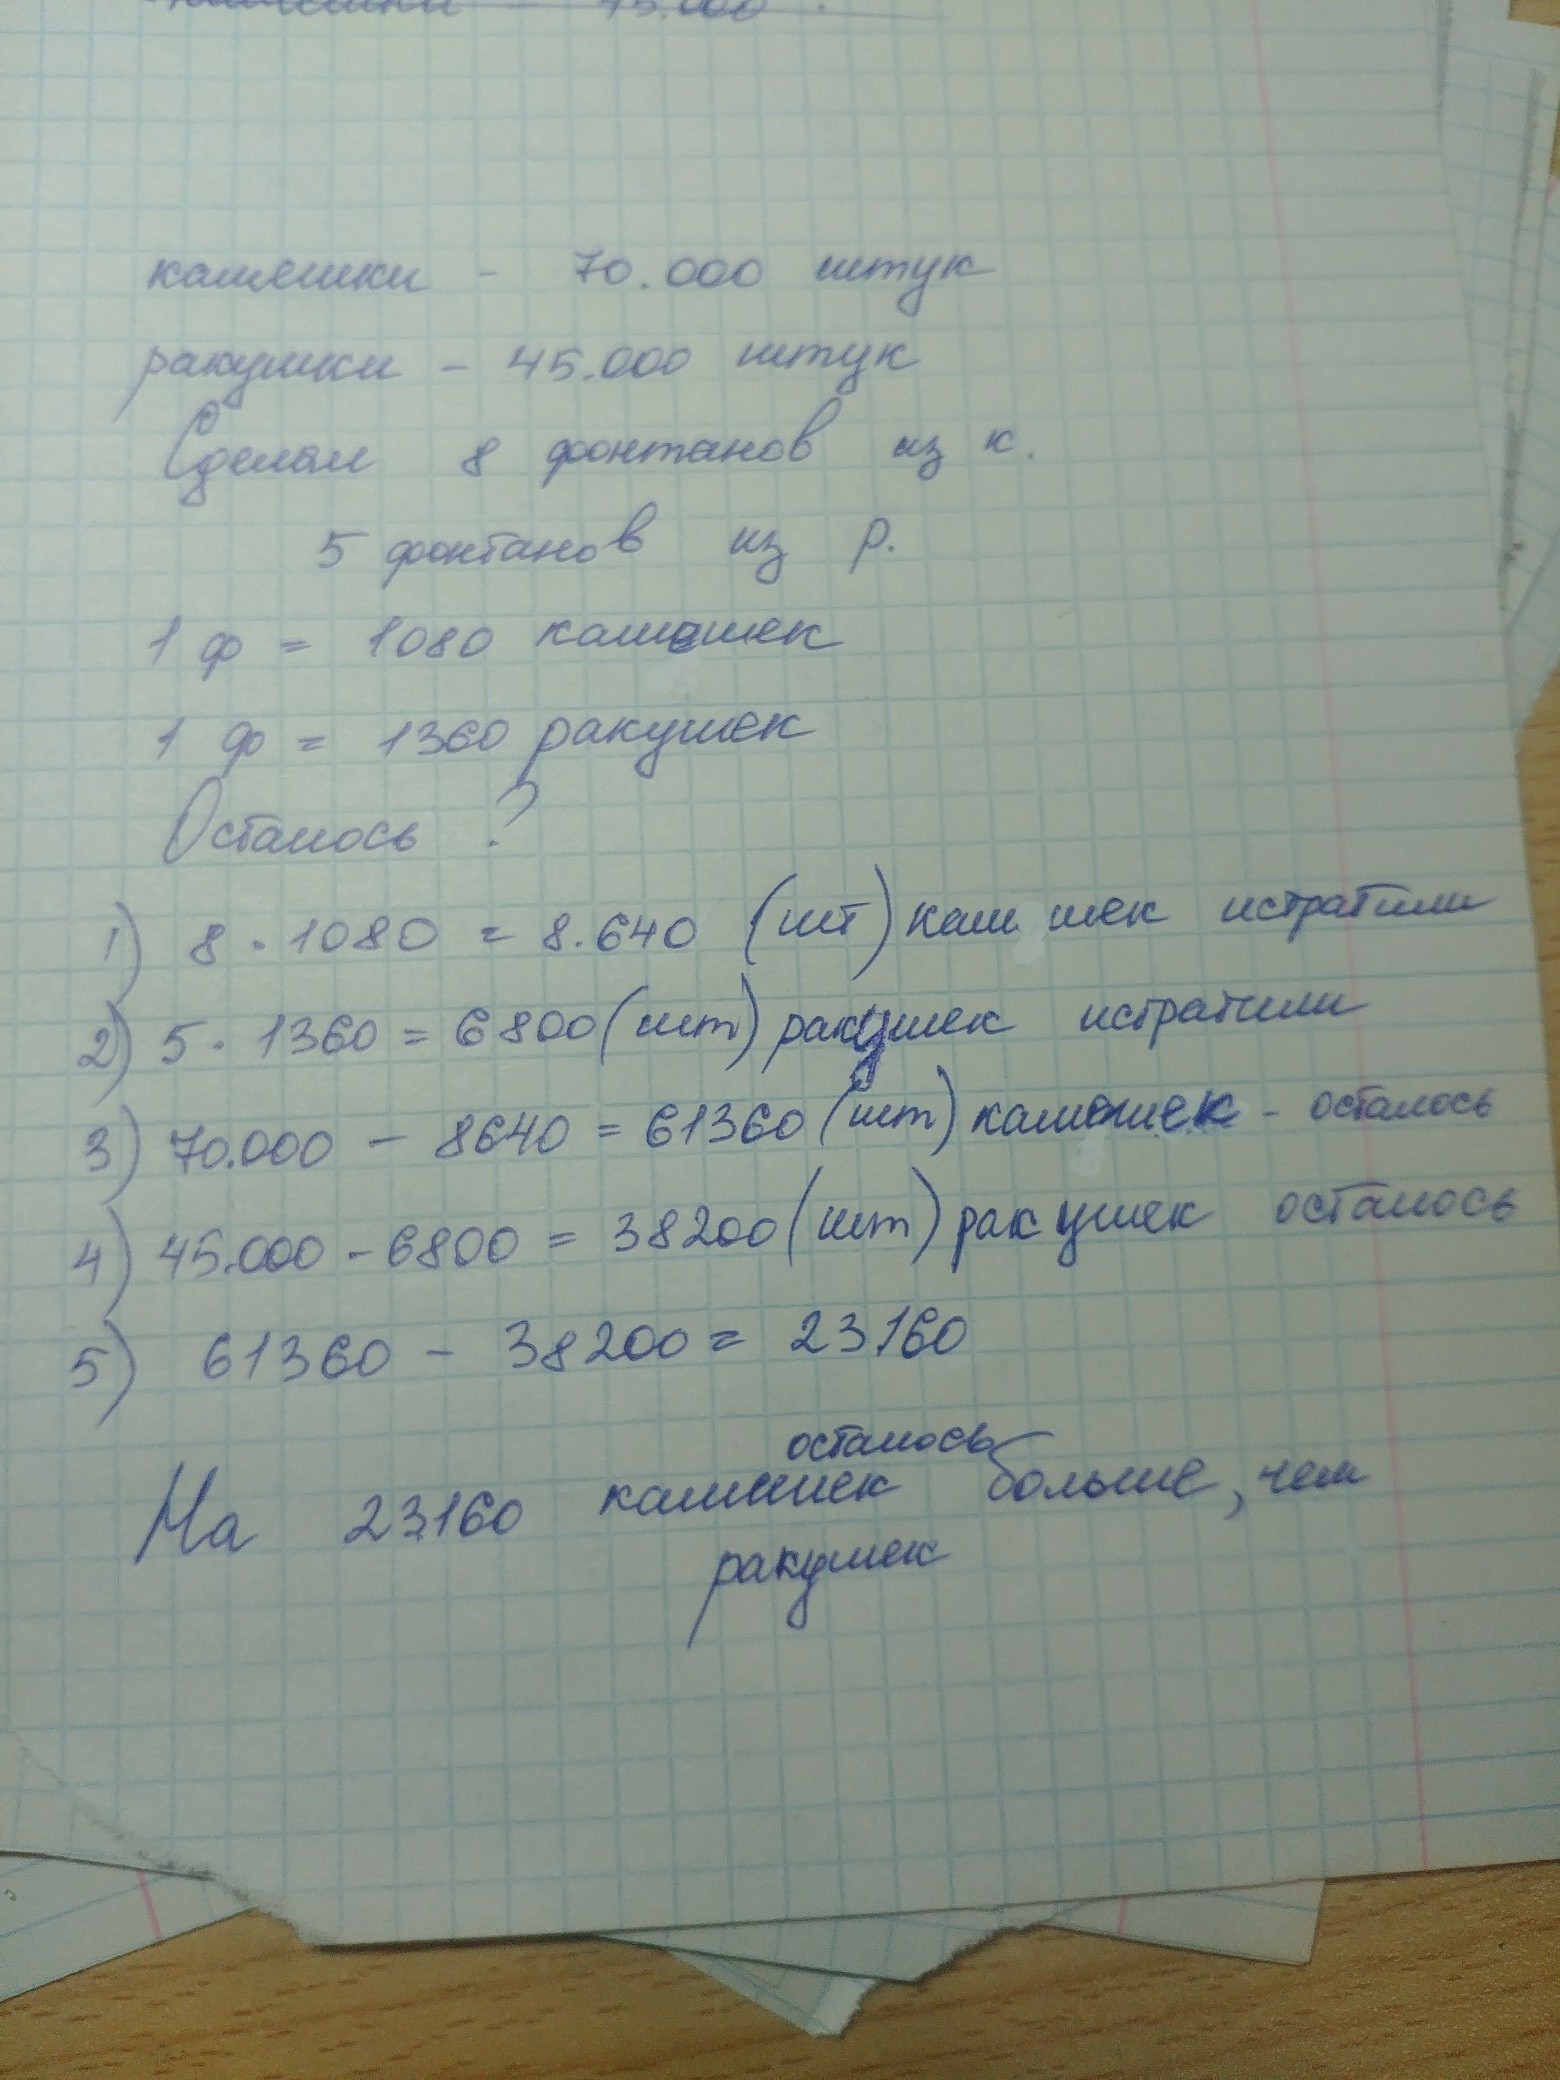 45.000
камешки - 70.000 штук
ракушки - 45.000 штук
Сделали 8 фонтанов из к.
5 фонтанов из р.
1 ф = 1080 камешек
1 ф = 1360 ракушек
Осталось ?
1) 8 · 1080 = 8.640 (шт) кам шек истратили
2) 5 · 1360 = 6800 (шт) ракушек истратили
3) 70.000 - 8640 = 61360 (шт) камешек - осталось
4) 45.000 - 6800 = 38200 (шт) ракушек осталось
5) 61360 - 38200 = 23160
осталось
На 23160 камешек больше, чем
ракушек